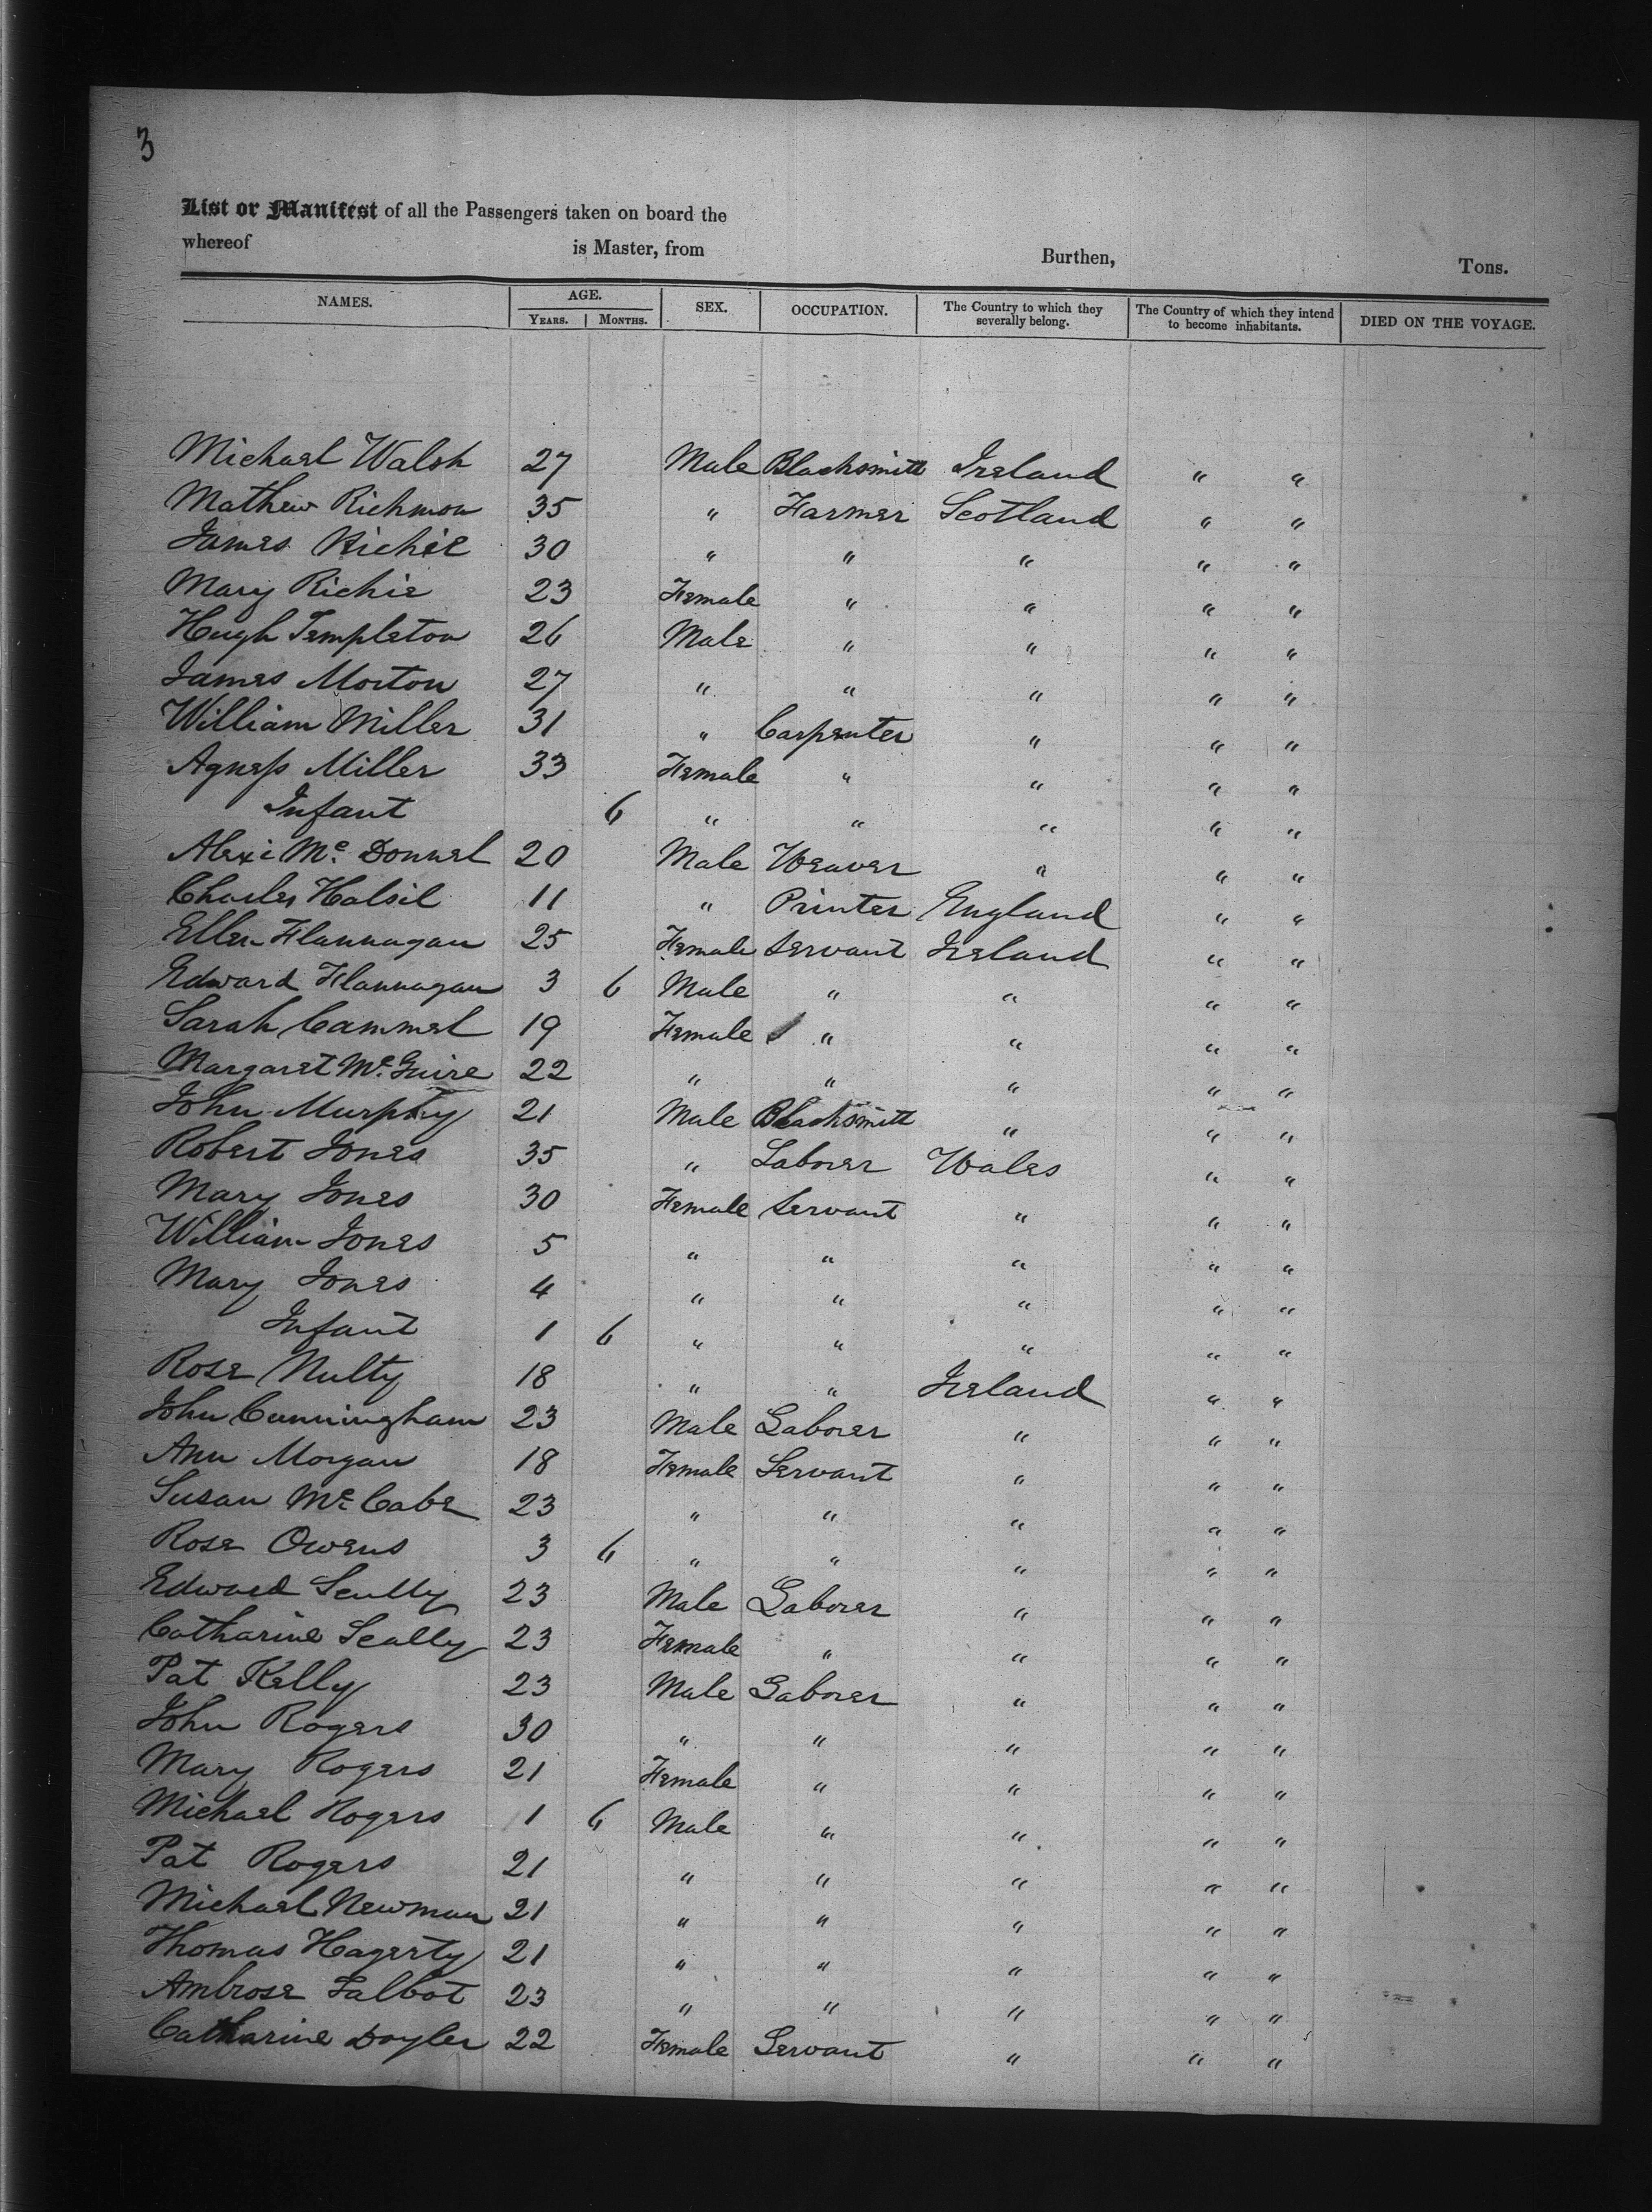 3
List or Manifest of all the Passengers taken on board the
whereof is Master, from Burthen, Tons.
NAMES. AGE. YEARS. MONTHS. SEX. OCCUPATION. The Country to which they severally belong. The Country of which they intend to become inhabitants. DIED ON THE VOYAGE.
Michael Walsh 27 Male Blacksmith Ireland " "
Mathew Richmon 35 " Farmer Scotland " "
James Richie 30 " " " " "
Mary Richie 23 Female " " " "
Hugh Templeton 26 Male " " " "
James Morton 27 " " " " "
William Miller 31 " Carpenter " " "
Agness Miller 33 Female " " " "
Infant 6 " " " " "
Alexi Mc. Donnel 20 Male Weaver " " "
Charles Halsil 11 " Printer England " "
Ellen Flannagan 25 Female Servant Ireland " "
Edward Flannagan 3 6 Male " " " "
Sarah Cammel 19 Female " " " "
Margaret Mc. Guire 22 " " " " "
John Murphy 21 Male Blacksmith " " "
Robert Jones 35 " Laborer Wales " "
Mary Jones 30 Female Servant " " "
William Jones 5 " " " " "
Mary Jones 4 " " " " "
Infant 1 6 " " " " "
Rose Nulty 18 " " Ireland " "
John Cunningham 23 Male Laborer " " "
Ann Morgan 18 Female Servant " " "
Susan Mc. Cabe 23 " " " " "
Rose Owens 3 6 " " " " "
Edward Scully 23 Male Laborer " " "
Catharine Scally 23 Female " " " "
Pat Kelly 23 Male Laborer " " "
John Rogers 30 " " " " "
Mary Rogers 21 Female " " " "
Michael Rogers 1 6 Male " " " "
Pat Rogers 21 " " " " "
Michael Newman 21 " " " " "
Thomas Hagerty 21 " " " " "
Ambrose Talbot 23 " " " " "
Catharine Doyler 22 Female Servant " " "